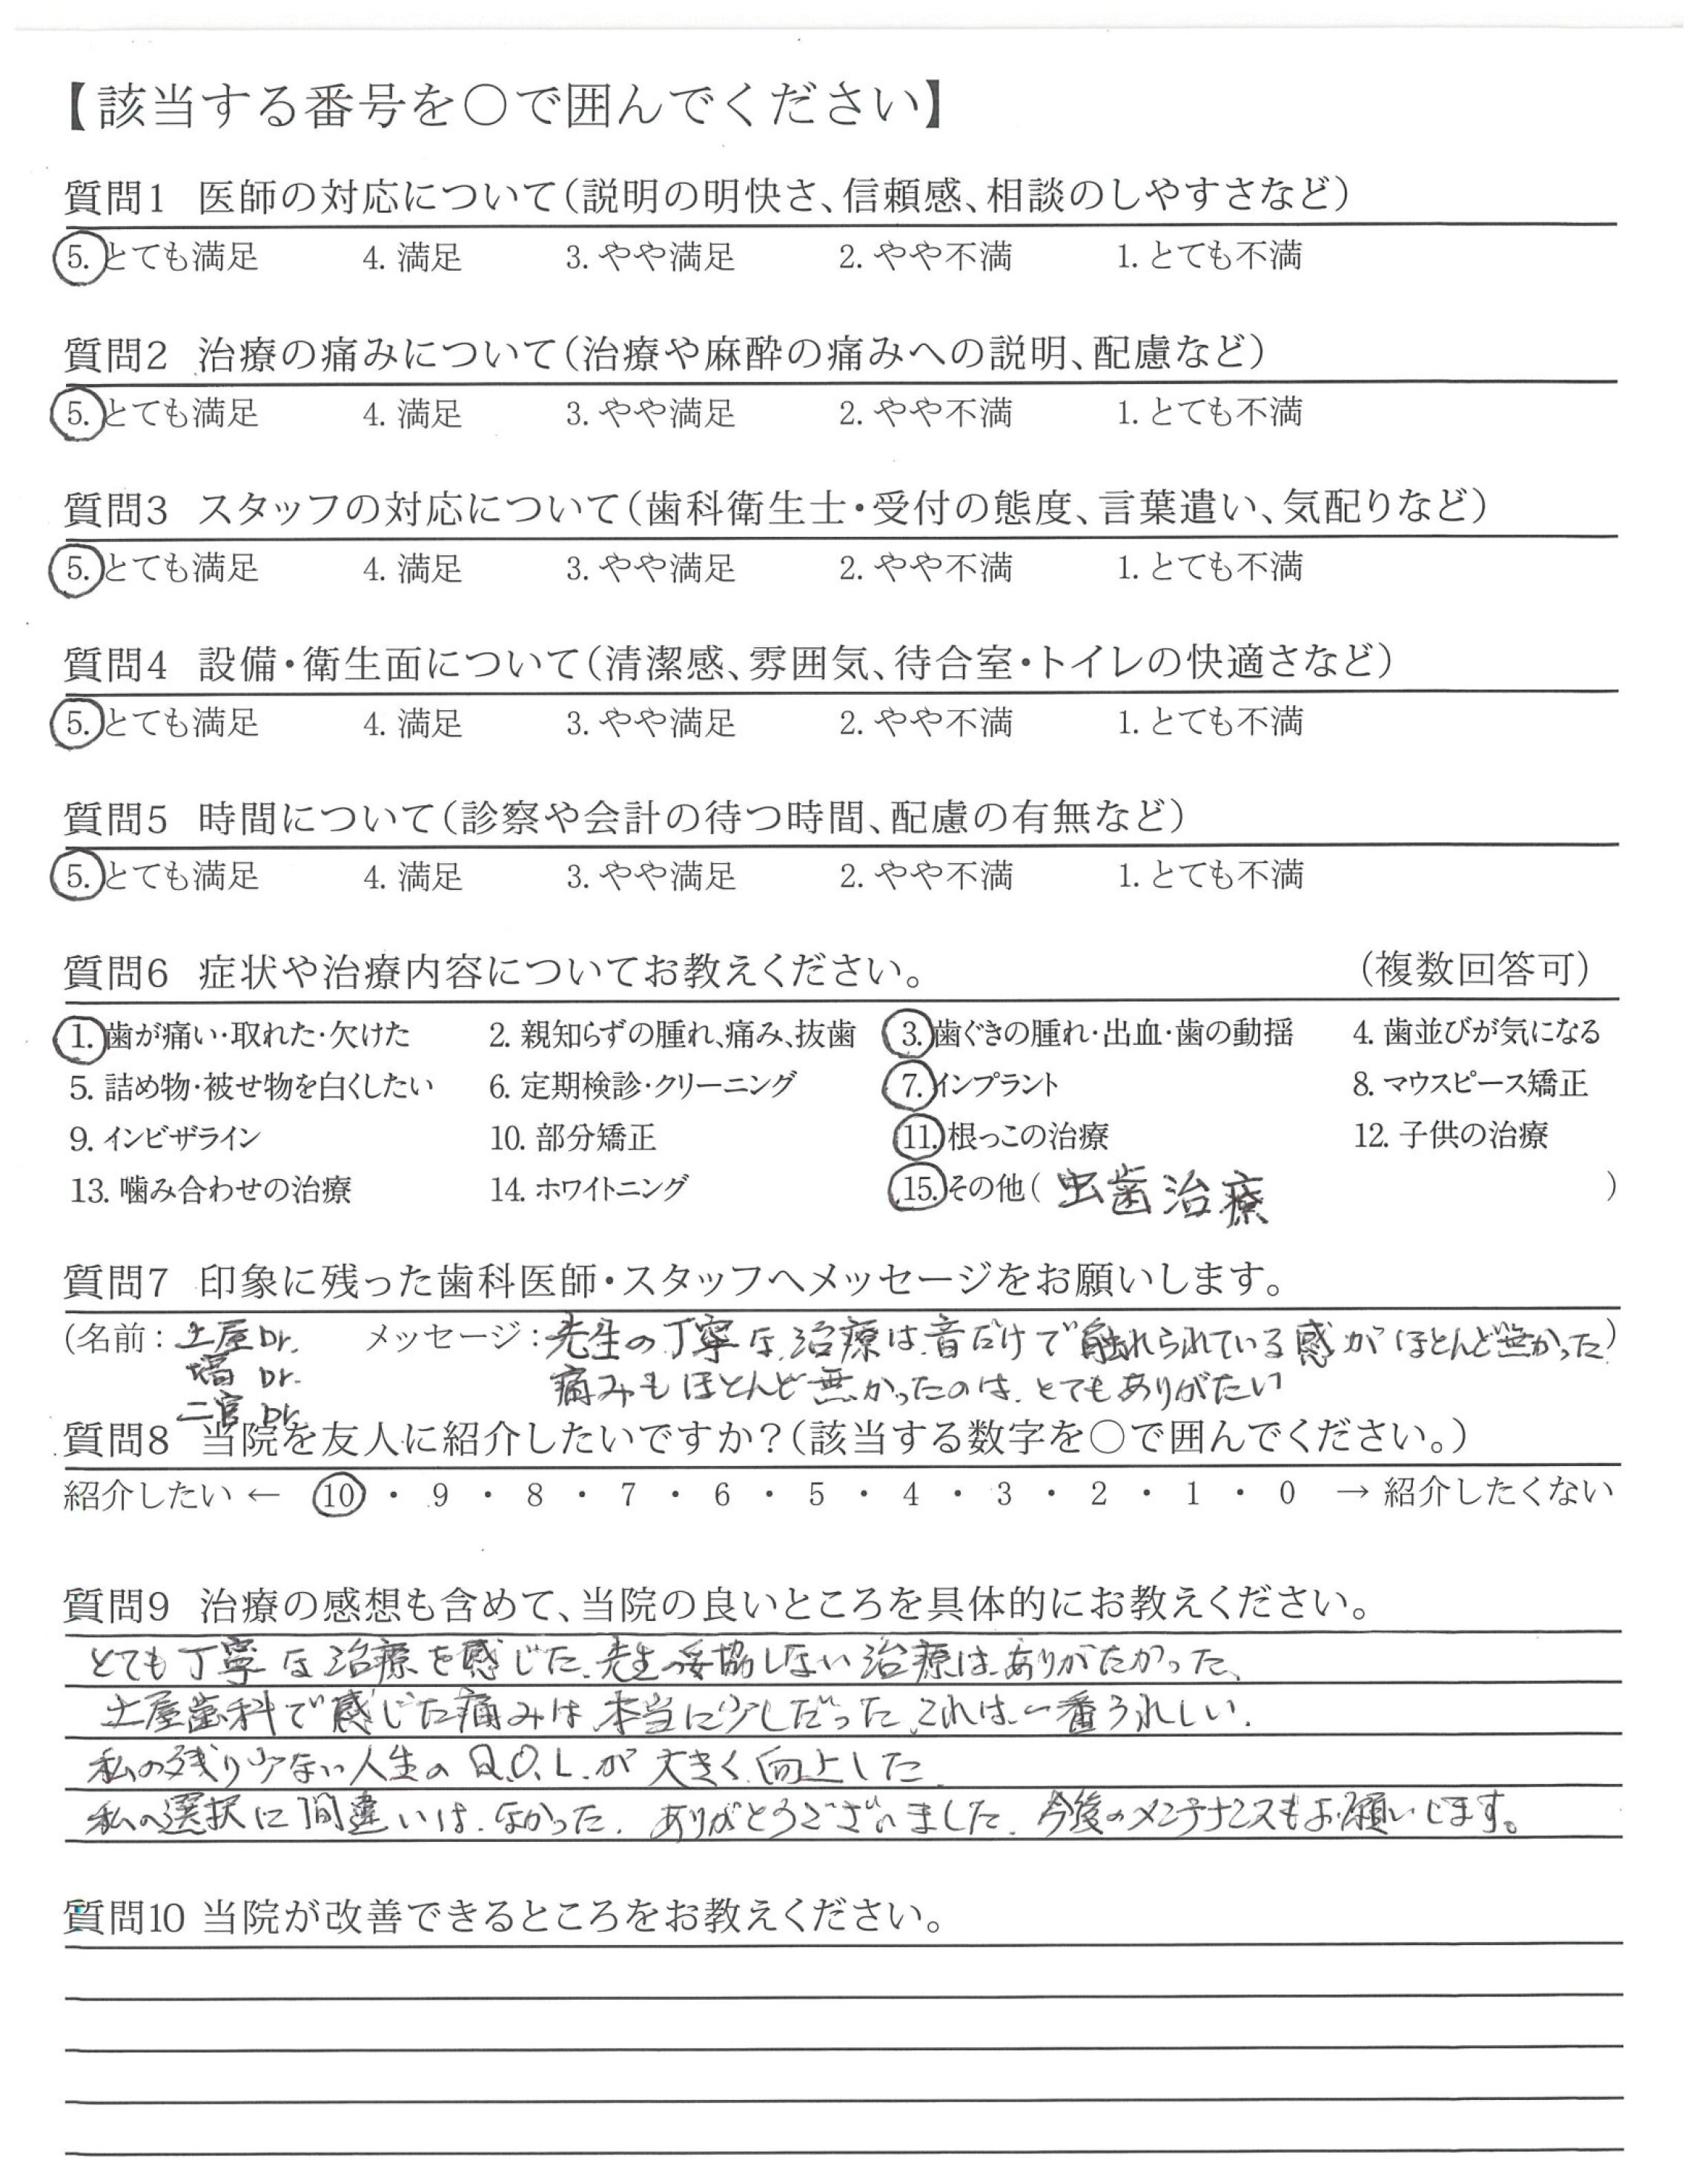 【該当する番号を○で囲んでください】
質問1 医師の対応について(説明の明快さ、信頼感、相談のしやすさなど)
5. とても満足 4. 満足 3. やや満足 2. やや不満 1. とても不満
質問2 治療の痛みについて(治療や麻酔の痛みへの説明、配慮など)
5. とても満足 4. 満足 3. やや満足 2. やや不満 1. とても不満
質問3 スタッフの対応について(歯科衛生士・受付の態度、言葉遣い、気配りなど)
5. とても満足 4. 満足 3. やや満足 2. やや不満 1. とても不満
質問4 設備・衛生面について(清潔感、雰囲気、待合室・トイレの快適さなど)
5. とても満足 4. 満足 3. やや満足 2. やや不満 1. とても不満
質問5 時間について(診察や会計の待つ時間、配慮の有無など)
5. とても満足 4. 満足 3. やや満足 2. やや不満 1. とても不満
質問6 症状や治療内容についてお教えください。 (複数回答可)
1. 歯が痛い・取れた・欠けた 2. 親知らずの腫れ、痛み、抜歯 3. 歯ぐきの腫れ・出血・歯の動揺 4. 歯並びが気になる
5. 詰め物・被せ物を白くしたい 6. 定期検診・クリーニング 7. インプラント 8. マウスピース矯正
9. インビザライン 10. 部分矯正 11. 根っこの治療 12. 子供の治療
13. 噛み合わせの治療 14. ホワイトニング 15. その他( 虫歯治療 )
質問7 印象に残った歯科医師・スタッフへメッセージをお願いします。
(名前: 土屋Dr. メッセージ: 先生の丁寧な治療は音だけで触れられている感がほとんど無かった)
Dr. 痛みもほとんど無かったのは、とてもありがたい
二宮 Dr.
質問8 当院を友人に紹介したいですか?(該当する数字を○で囲んでください。)
紹介したい ← 10 ・ 9 ・ 8 ・ 7 ・ 6 ・ 5 ・ 4 ・ 3 ・ 2 ・ 1 ・ 0 → 紹介したくない
質問9 治療の感想も含めて、当院の良いところを具体的にお教えください。
とても丁寧な治療を感じた、先生の妥協しない治療は、ありがたかった、
土屋歯科で感じた痛みは、本当に少しだった、これは、一番うれしい.
私の残り少ない人生の Q.O.L. が 大きく向上した
私の選択に間違いは、なかった. ありがとうございました. 今後のメンテナンスもお願いします。
質問10 当院が改善できるところをお教えください。